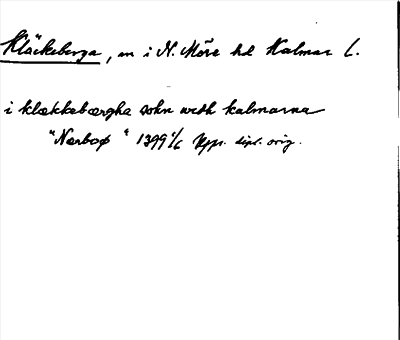 Kläckeberga, sn i N. Möre hd Kalmar l.
i klækkebærgha sokn weth kalmarna
"Nærboø" 1399 1/6 Upps. dipl. orig.